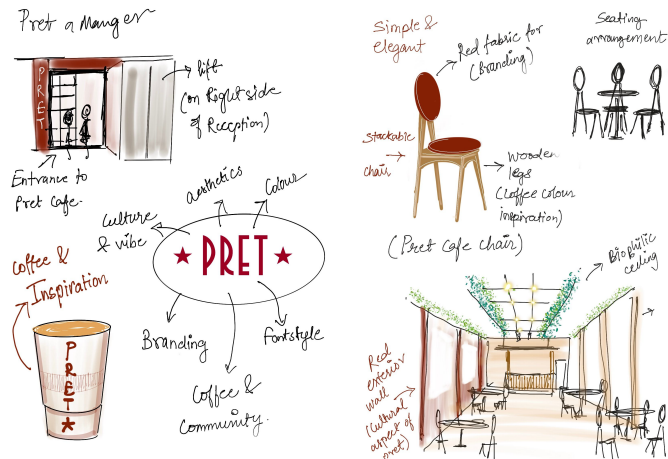 Pret a Manger
PRET
lift
(on Right side
of Reception)
Entrance to
Pret Cafe.
aesthetics
Colour
Culture
& vibe
★ PRET ★
Branding
Fontstyle
Coffee &
Community.
Coffee &
Inspiration
PRET★
Simple &
elegant
Red fabric for
(Branding)
Seating
arrangement
Stackable
chair
wooden
legs
(Coffee colour
inspiration)
(Pret Cafe chair)
Biophilic
ceiling
Red
exterior
wall
(Cultural
aspect of
pret)